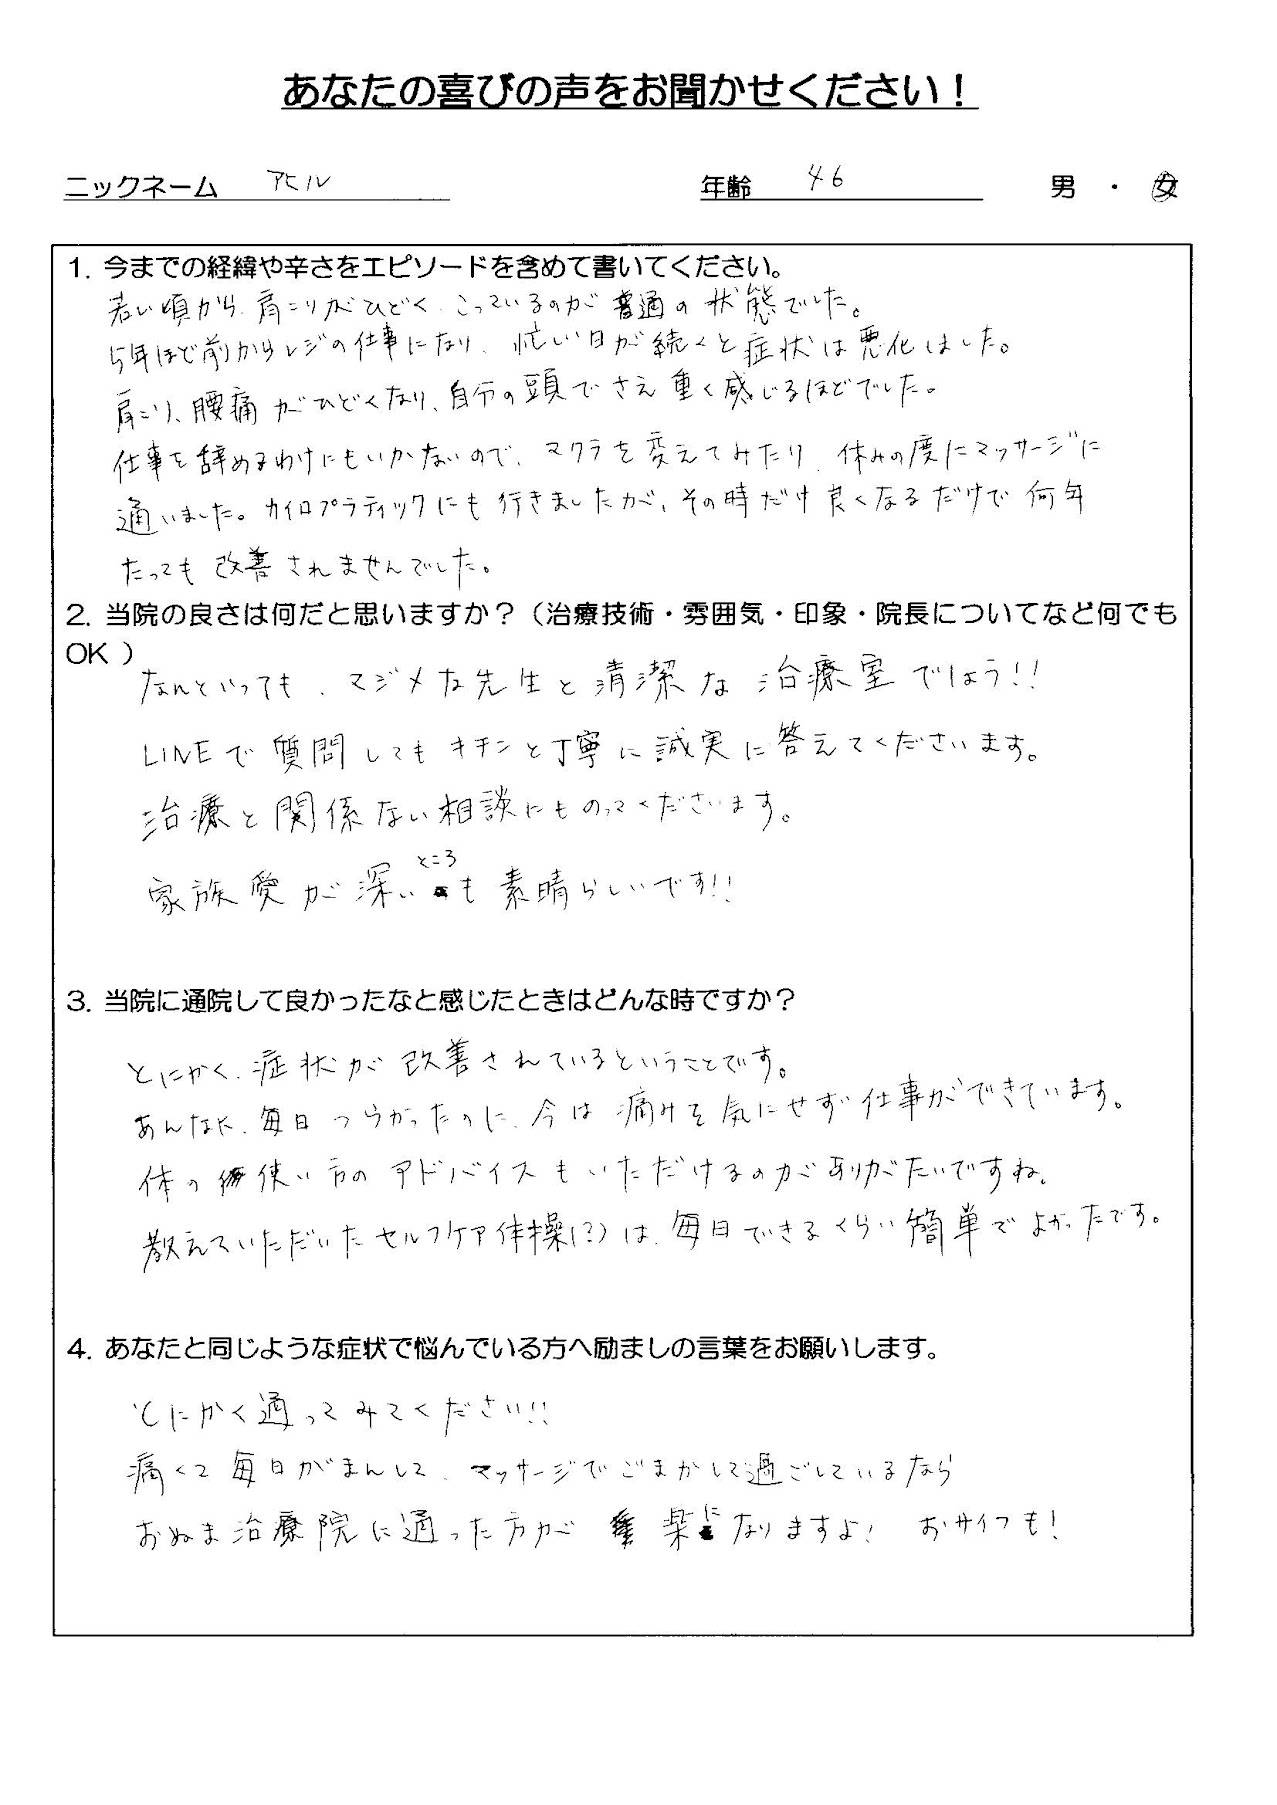 あなたの喜びの声をお聞かせください！
ニックネーム アヒル 年齢 46 男 ・ 女
1. 今までの経緯や辛さをエピソードを含めて書いてください。
若い頃から、肩こりがひどく、こっているのが普通の状態でした。
5年ほど前からレジの仕事になり、忙しい日が続くと症状は悪化しました。
肩こり、腰痛がひどくなり、自分の頭でさえ重く感じるほどでした。
仕事を辞めるわけにもいかないので、マクラを変えてみたり、休みの度にマッサージに
通いました。カイロプラティックにも行きましたが、その時だけ良くなるだけで何年
たっても改善されませんでした。
2. 当院の良さは何だと思いますか？（治療技術・雰囲気・印象・院長についてなど何でも
OK ）
なんといっても、マジメな先生と清潔な治療室でしょう!!
LINEで質問してもキチンと丁寧に誠実に答えてくださいます。
治療と関係ない相談にものってくださいます。
家族愛が深いところも素晴らしいです!!
3. 当院に通院して良かったなと感じたときはどんな時ですか？
とにかく、症状が改善されているということです。
あんなに、毎日つらかったのに、今は痛みを気にせず仕事ができています。
体の使い方のアドバイスもいただけるのがありがたいですね。
教えていただいたセルフケア体操(?)は、毎日できるくらい簡単でよかったです。
4. あなたと同じような症状で悩んでいる方へ励ましの言葉をお願いします。
とにかく通ってみてください!!
痛くて毎日がまんして、マッサージでごまかして過ごしているなら
おぬま治療院に通った方が楽になりますよ! おサイフも!